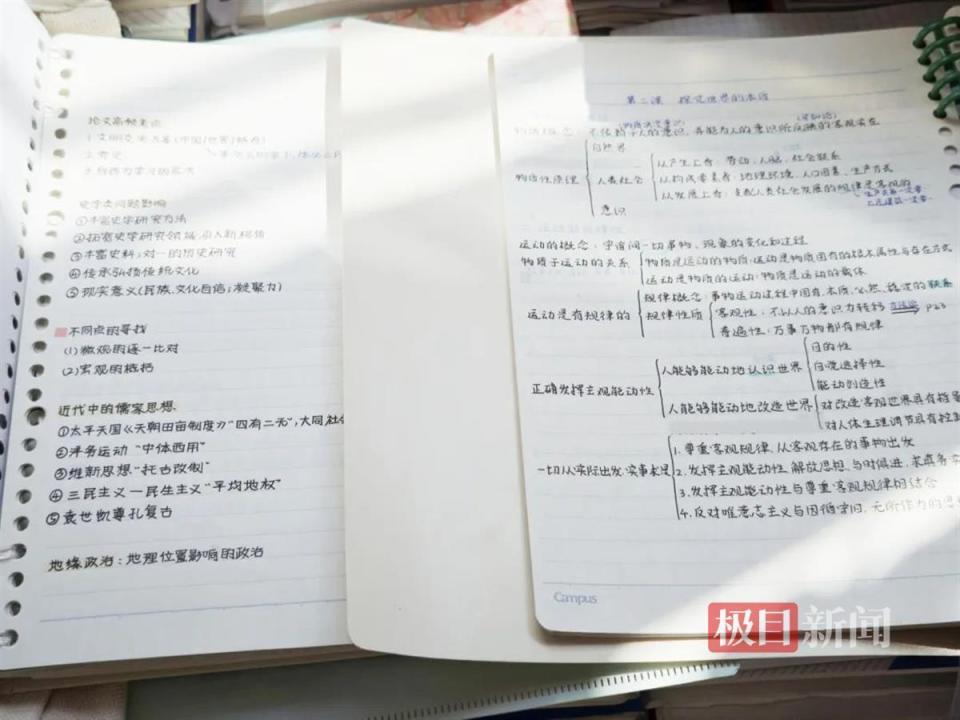 论文高频考点
史学类问题影响
①丰富史学研究方法
②拓宽史学研究领域,引入新视角
③丰富史料;对一的历史研究
④传承弘扬传统文化
⑤现实意义(民族、文化自信;凝聚力)
不同点的寻找
(1)微观的逐一比对
(2)宏观的概括
近代中的儒家思想
①太平天国《天朝田亩制度》"四有二无",大同社会
②洋务运动"中体西用"
③维新思想"托古改制"
④三民主义—民生主义"平均地权"
⑤袁世凯尊孔复古
地缘政治:地理位置影响的政治
第二课 探究世界的本质
物质概念:不依赖于人的意识,并能为人的意识所反映的客观实在
自然界
物质性原理
人类社会
从产生上看:劳动、人脑、社会联系
从构成要素看:地理环境、人口因素、生产方式
从发展上看:支配人类社会发展的规律是客观的
意识
运动的概念:宇宙间一切事物、现象的变化和过程
物质于运动的关系
物质是运动的物质:运动是物质固有的根本属性与存在方式
运动是物质的运动:物质是运动的载体
运动是有规律的
规律概念:事物运动过程中固有、本质、必然、稳定的联系
规律性质
客观性:不以人的意识为转移 方法论 P23
普遍性:万事万物都有规律
正确发挥主观能动性
人能够能动地认识世界
目的性
自觉选择性
能动创造性
人能够能动地改造世界
对改造客观世界具有指导
对人体生理调节具有控制
一切从实际出发,实事求是
1.尊重客观规律,从客观存在的事物出发
2.发挥主观能动性,解放思想、与时俱进、求真务实
3.发挥主观能动性与尊重客观规律相结合
4.反对唯意志主义与因循守旧、无所作为的思
Campus
极目新闻